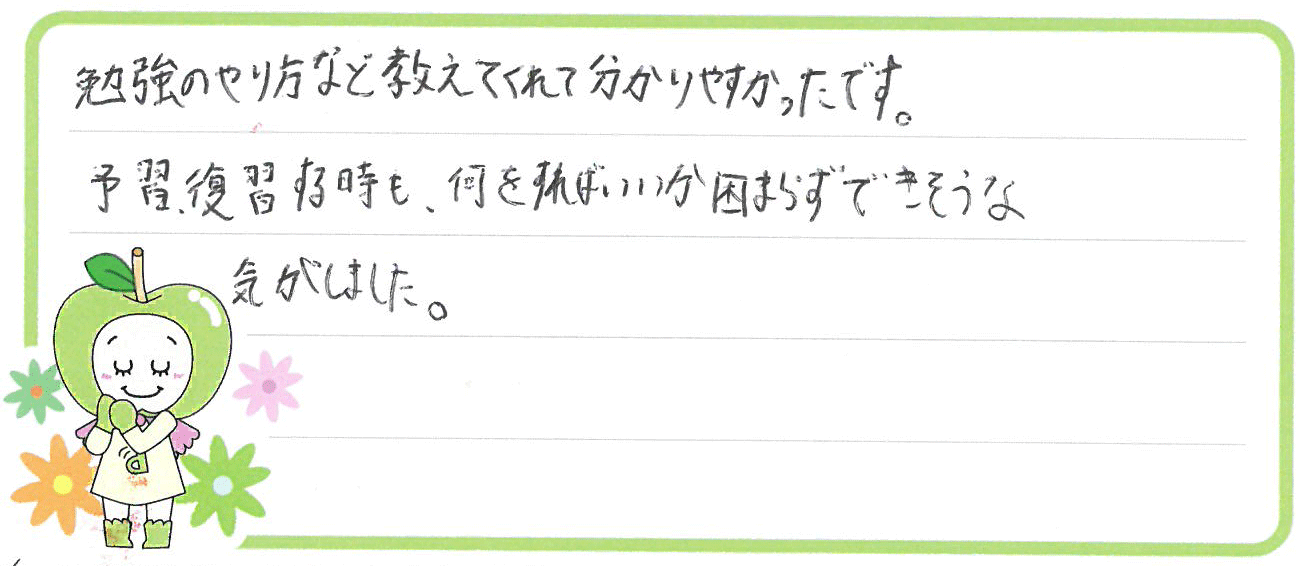 勉強のやり方など教えてくれて分かりやすかったです。
予習、復習する時も、何をすればいいか困まらずできそうな
気がしました。